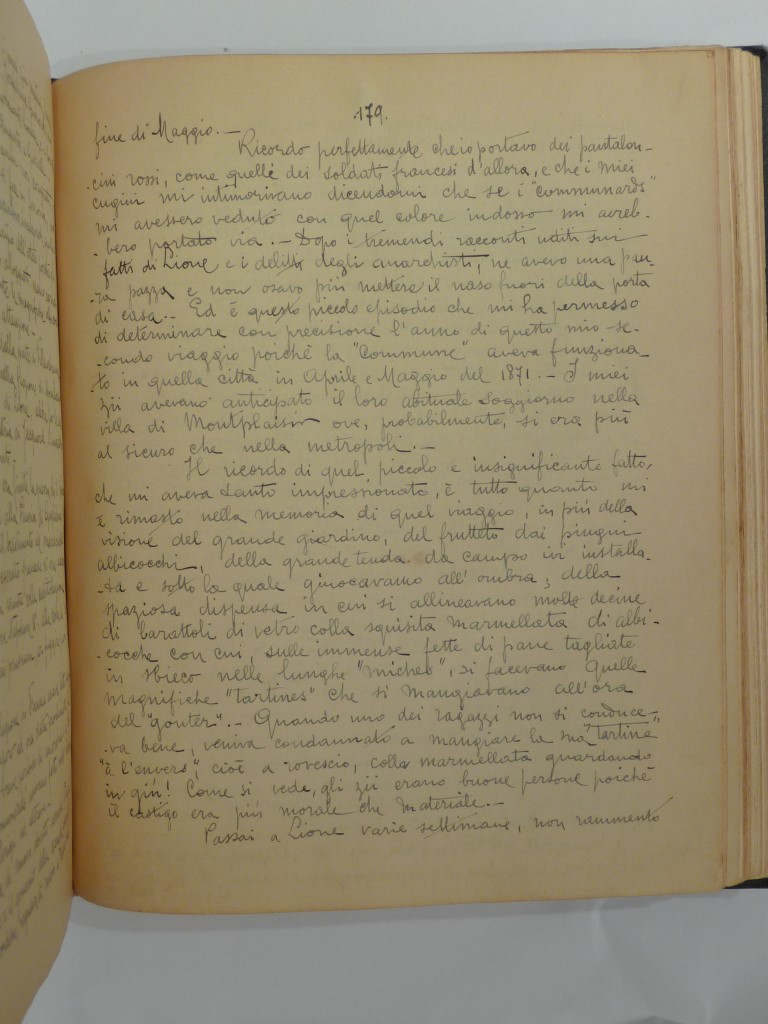 .179.
fine di Maggio. —
Ricordo perfettamente che io portavo dei pantalon-
-cini rossi, come quelli dei soldati francesi d'allora, e che i miei
cugini mi intimorivano dicendomi che se i "communards"
mi avessero veduto con quel colore indosso mi avreb-
-bero portato via. — Dopo i tremendi racconti uditi sui
fatti di Lione e i delitti degli anarchisti, ne avevo una pau-
-ra pazza e non osavo più mettere il naso fuori della porta
di casa. — Ed è questo piccolo episodio che mi ha permesso
di determinare con precisione l'anno di questo mio se-
-condo viaggio perchè la "Commune" aveva funziona-
-to in quella città in Aprile e Maggio del 1871. — I miei
zii avevano anticipato il loro abituale soggiorno nella
villa di Montplaisir ove, probabilmente, si era più
al sicuro che nella metropoli. —
Il ricordo di quel piccolo e insignificante fatto,
che mi aveva tanto impressionato, è tutto quanto mi
è rimasto nella memoria di quel viaggio, in più della
visione del grande giardino, del frutteto dai pingui
albicocchi, della grande tenda da campo ivi installa-
-ta e sotto la quale giuocavamo all'ombra; della
spaziosa dispensa in cui si allineavano molte decine
di barattoli di vetro colla squisita marmellata di albi-
-cocche con cui, sulle immense fette di pane tagliate
in sbieco nelle lunghe "miches", si facevano quelle
magnifiche "tartines" che si mangiavano all'ora
del "goûter". — Quando uno dei ragazzi non si conduce-
-va bene, veniva condannato a mangiare la sua "tartine"
"à l'envers", cioè a rovescio, colla marmellata guardando
in giù! Come si vede, gli zii erano buone persone poichè
il castigo era più morale che materiale. —
Passai a Lione varie settimane, non rammento